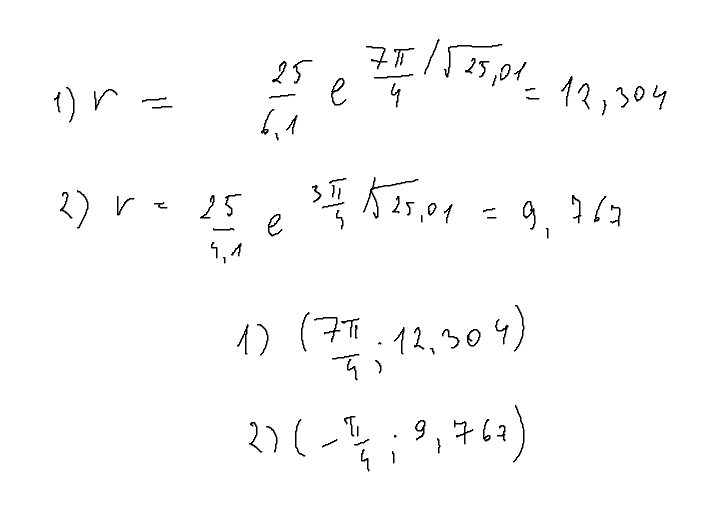 1) r = 25/6,1 e^(7π/4 / √25,01) = 12,304
2) r = 25/4,1 e^(3π/4 / √25,01) = 9,767
1) (7π/4; 12,304)
2) (-π/4; 9,767)